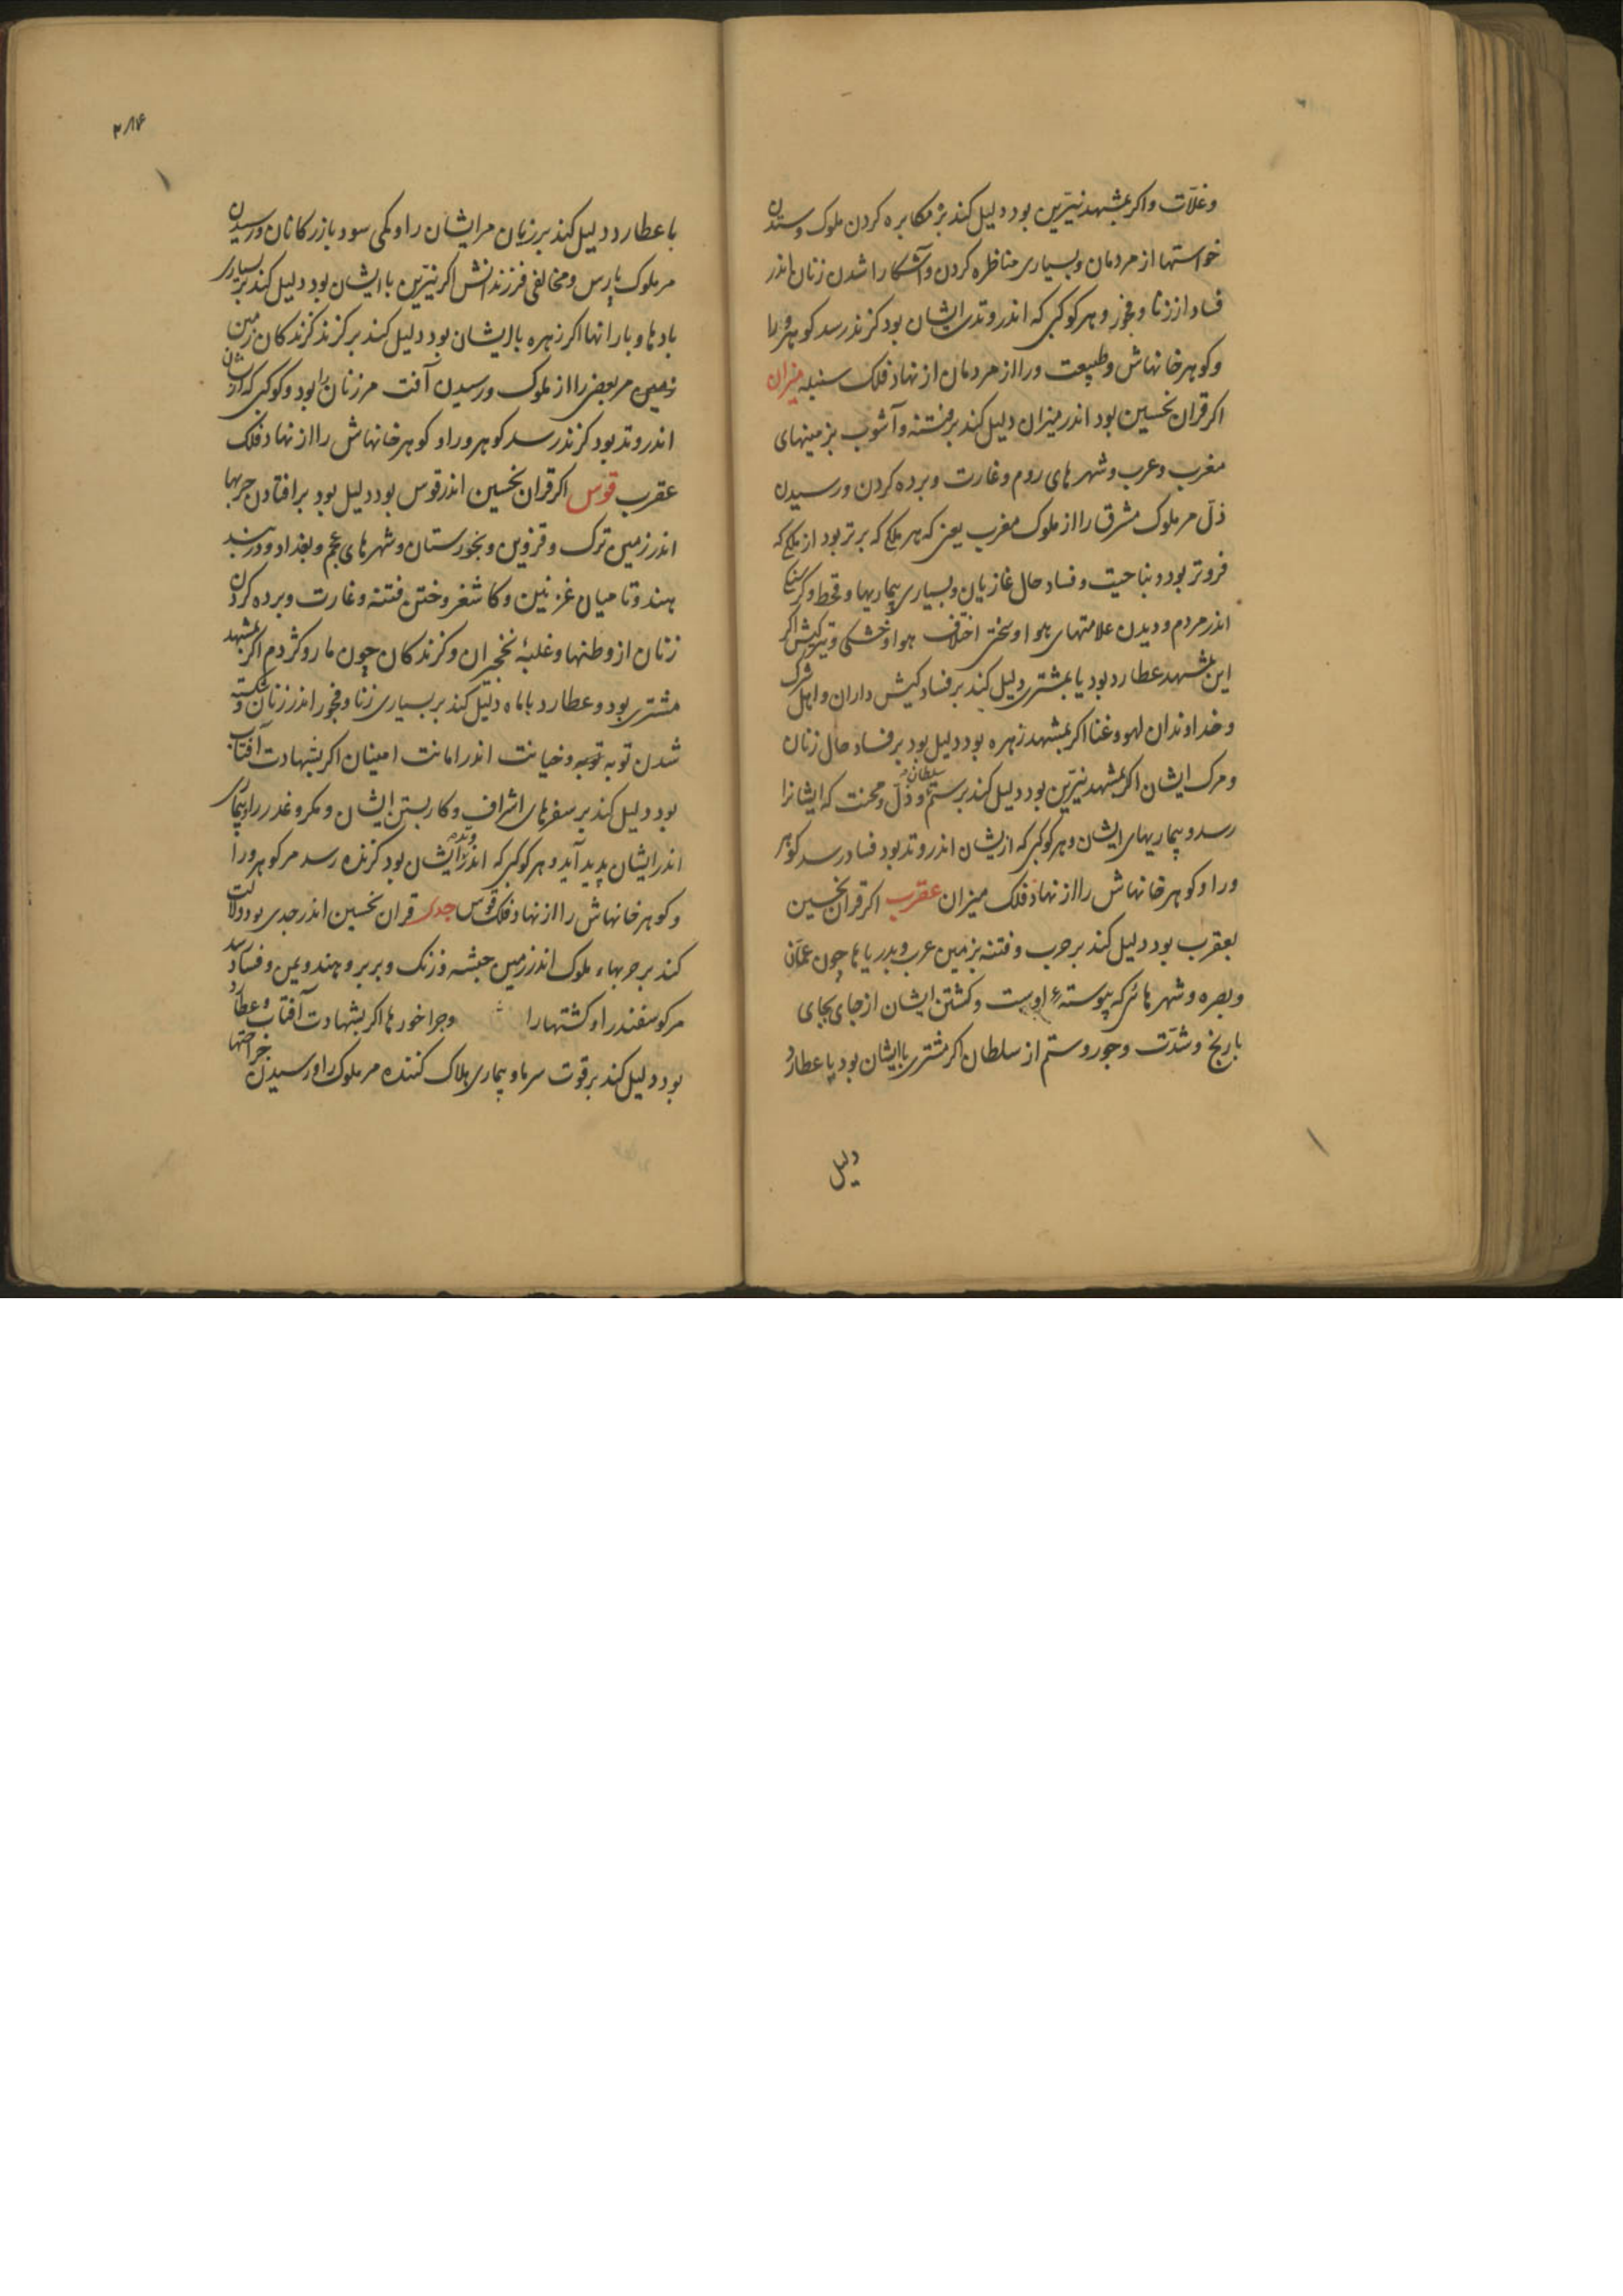 وغلّات واکر بمشهد نیّرین بود دلیل کند بر مکابره کردن ملوک وستدن
خواستها از مردمان وبسیاری مناظره کردن وآشکارا شدن زنان اندر
فساد از زنا وفجور وهر کوکبی که اندر وتدی ایشان بود کزند رسد کوهر ورا
وکوهر خانهاش وطبیعت ورا از مردمان از نهاد فلک سنبله میزان
اکر قران نحسین بود اندر میزان دلیل کند بر فتنه وآشوب بزمینهای
مغرب وعرب وشهرهای روم وغارت وبرده کردن ورسیدن
ذلّ مر ملوک مشرق را از ملوک مغرب یعنی که هر ملکی که برتر بود از ملکی که
فروتر بود بناحیت وفساد حال غازیان وبسیاری بیماریها وقحط وکرسنکی
اندر مردم ودیدن علامتهای هوا وسختی اختلاف هوا وخشکی وتیرکیش اکر
این بمشهد عطارد بود یا بمشتری دلیل کند بر فساد کیش داران واهل
وخداوندان لهو وغنا اکر بمشهد زهره بود دلیل بود بر فساد حال زنان
ومرک ایشان اکر بمشهد نیّرین بود دلیل کند بر ستم سلطان وذلّ ومحنت که ایشانرا
رسد وبیماریهای ایشان وهر کوکبی که ازیشان اندر وتد بود فساد رسد کوهر
ورا وکوهر خانهاش را از نهاد فلک میزان عقرب اکر قران نحسین
بعقرب بود دلیل کند بر حرب وفتنه بزمین عرب وبدریاها چون عمّان
وبصره وشهرهائی که پیوستهٔ اوست وکشتن ایشان از جای بجای
با رنج وشدّت وجور وستم از سلطان اکر مشتری با ایشان بود یا عطارد
دلیل
۲۸۴
با عطارد دلیل کند بر زیان مر ایشان را وکمی سود بازرکانان ورسیدن
مر ملوک پارس ومخالفی فرزندانش اکر نیّرین با ایشان بود دلیل کند بر بسیاری
بادها وبارانها اکر زهره با ایشان بود دلیل کند بر کزند کزندکان زمین
زمین مر بعضی را از ملوک ورسیدن آفت مر زنان را بود وکوکبی که ازیشان
اندر وتد بود کزند رسد کوهر ورا وکوهر خانهاش را از نهاد فلک
عقرب قوس اکر قران نحسین اندر قوس بود دلیل بود بر افتادن حربها
اندر زمین ترک وقزوین وبخورستان وشهرهای عجم وبغداد ودربند
هند وتا میان غزنین وکاشغر وختن فتنه وغارت وبرده کردن
زنان از وطنها وغلبهٔ نخجیران وکزندکان چون مار وکژدم اکر بمشهد
مشتری بود وعطارد با ماه دلیل کند بر بسیاری زنا وفجور اندر زنان وشکسته
شدن توبه توبه وخیانت اندر امانت امینان اکر بشهادت آفتاب
بود دلیل کند بر سفرهای اشراف وکار بستن ایشان ومکر وغدر را وبیماری
اندر ایشان پدید آید وهر کوکبی که اندر وتد ایشان بود کزنده رسد مر کوهر ورا
وکوهر خانهاش را از نهاد فلک قوس جدی قران نحسین اندر جدی بود دلالت
کند بر حربهاء ملوک اندر زمین حبشه وزنک وبربر وهند ویمن وفساد رسد
مر کوسفندرا وکشتهارا وچراخورها اکر بشهادت آفتاب وعطارد
بود دلیل کند بر قوت سرما وبیماری هلاک کننده مر ملوک را ورسیدن جراحتها